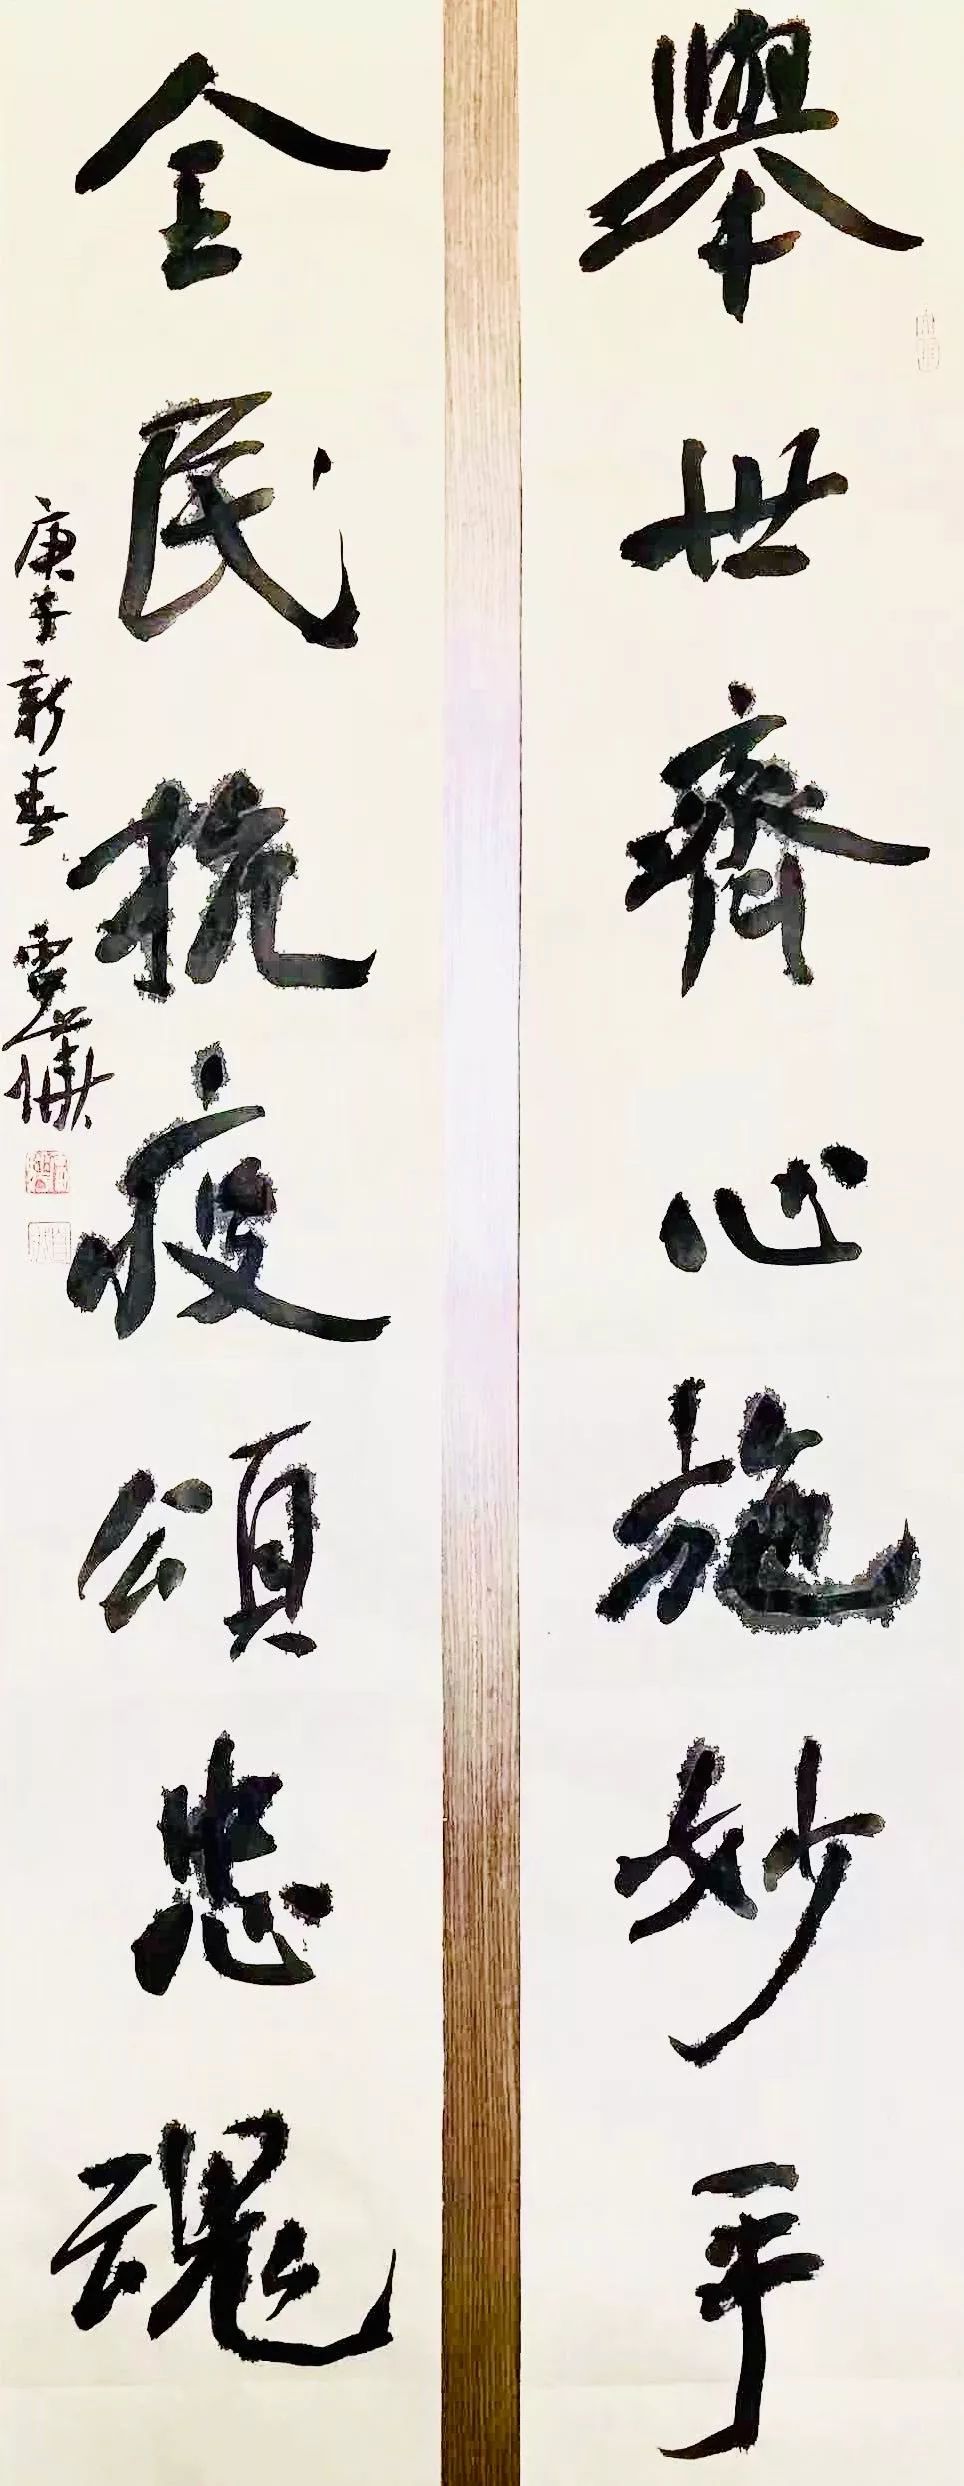 舉世齊心施妙手
全民抗疫頌忠魂
庚子新春